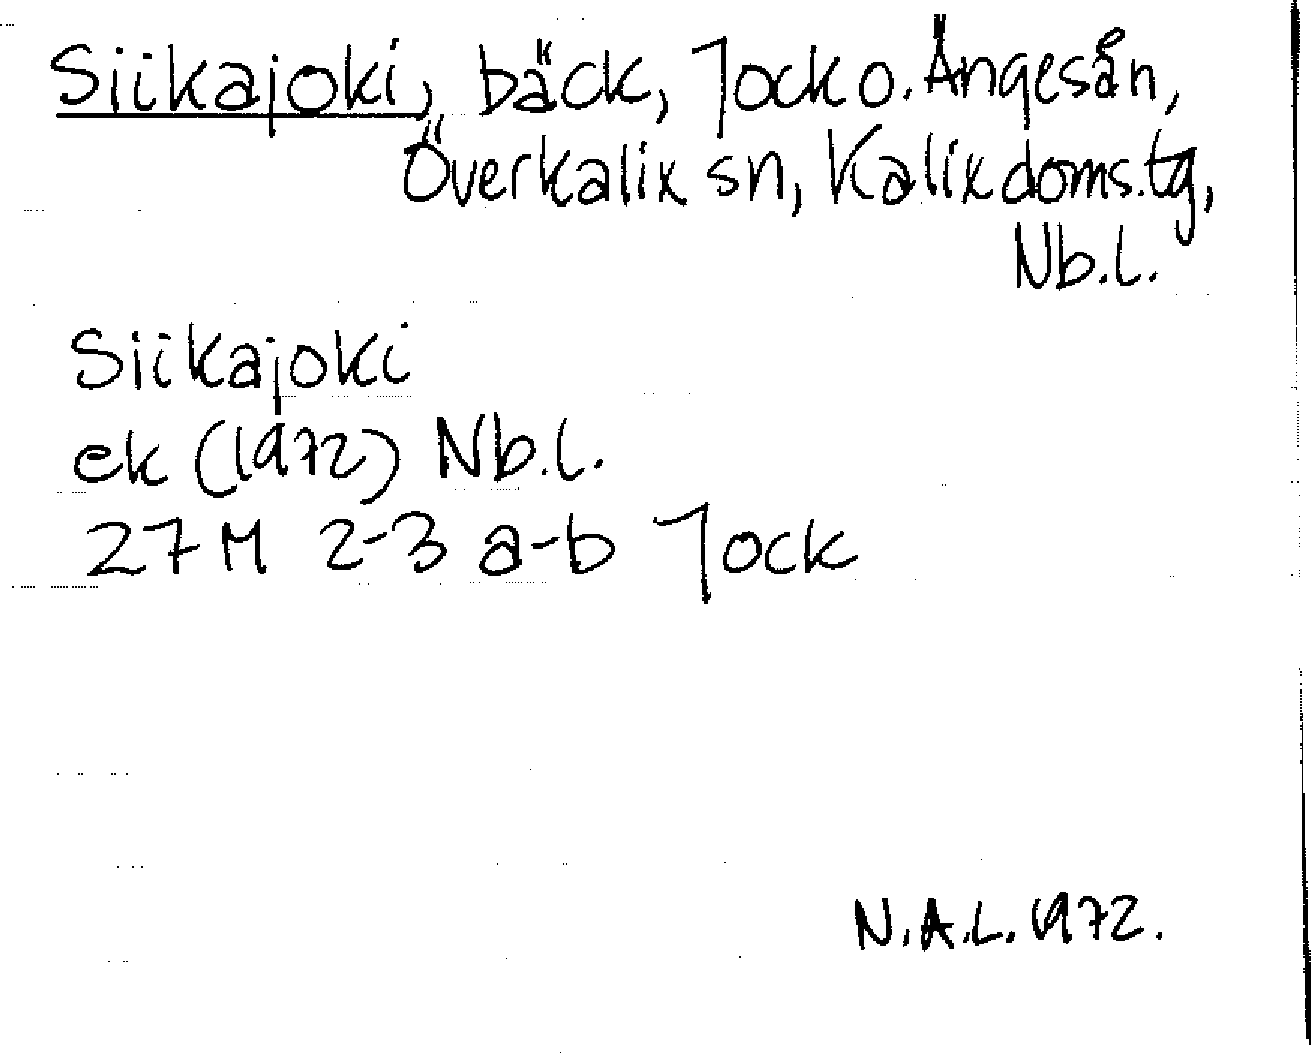 Siikajoki, bäck, Jock o. Ängesån,
Överkalix sn, Kalix doms.tg,
Nb.l.
Siikajoki
ek (1972) Nb.l.
27M 2-3 a-b Jock
N.A.L. 1972.